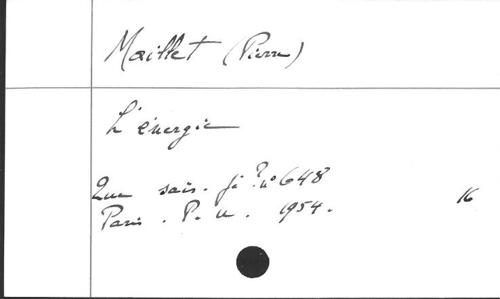 Maillet (Pierre)
L'énergie
Que sais-je? n° 648
Paris. P. U. 1954. 16